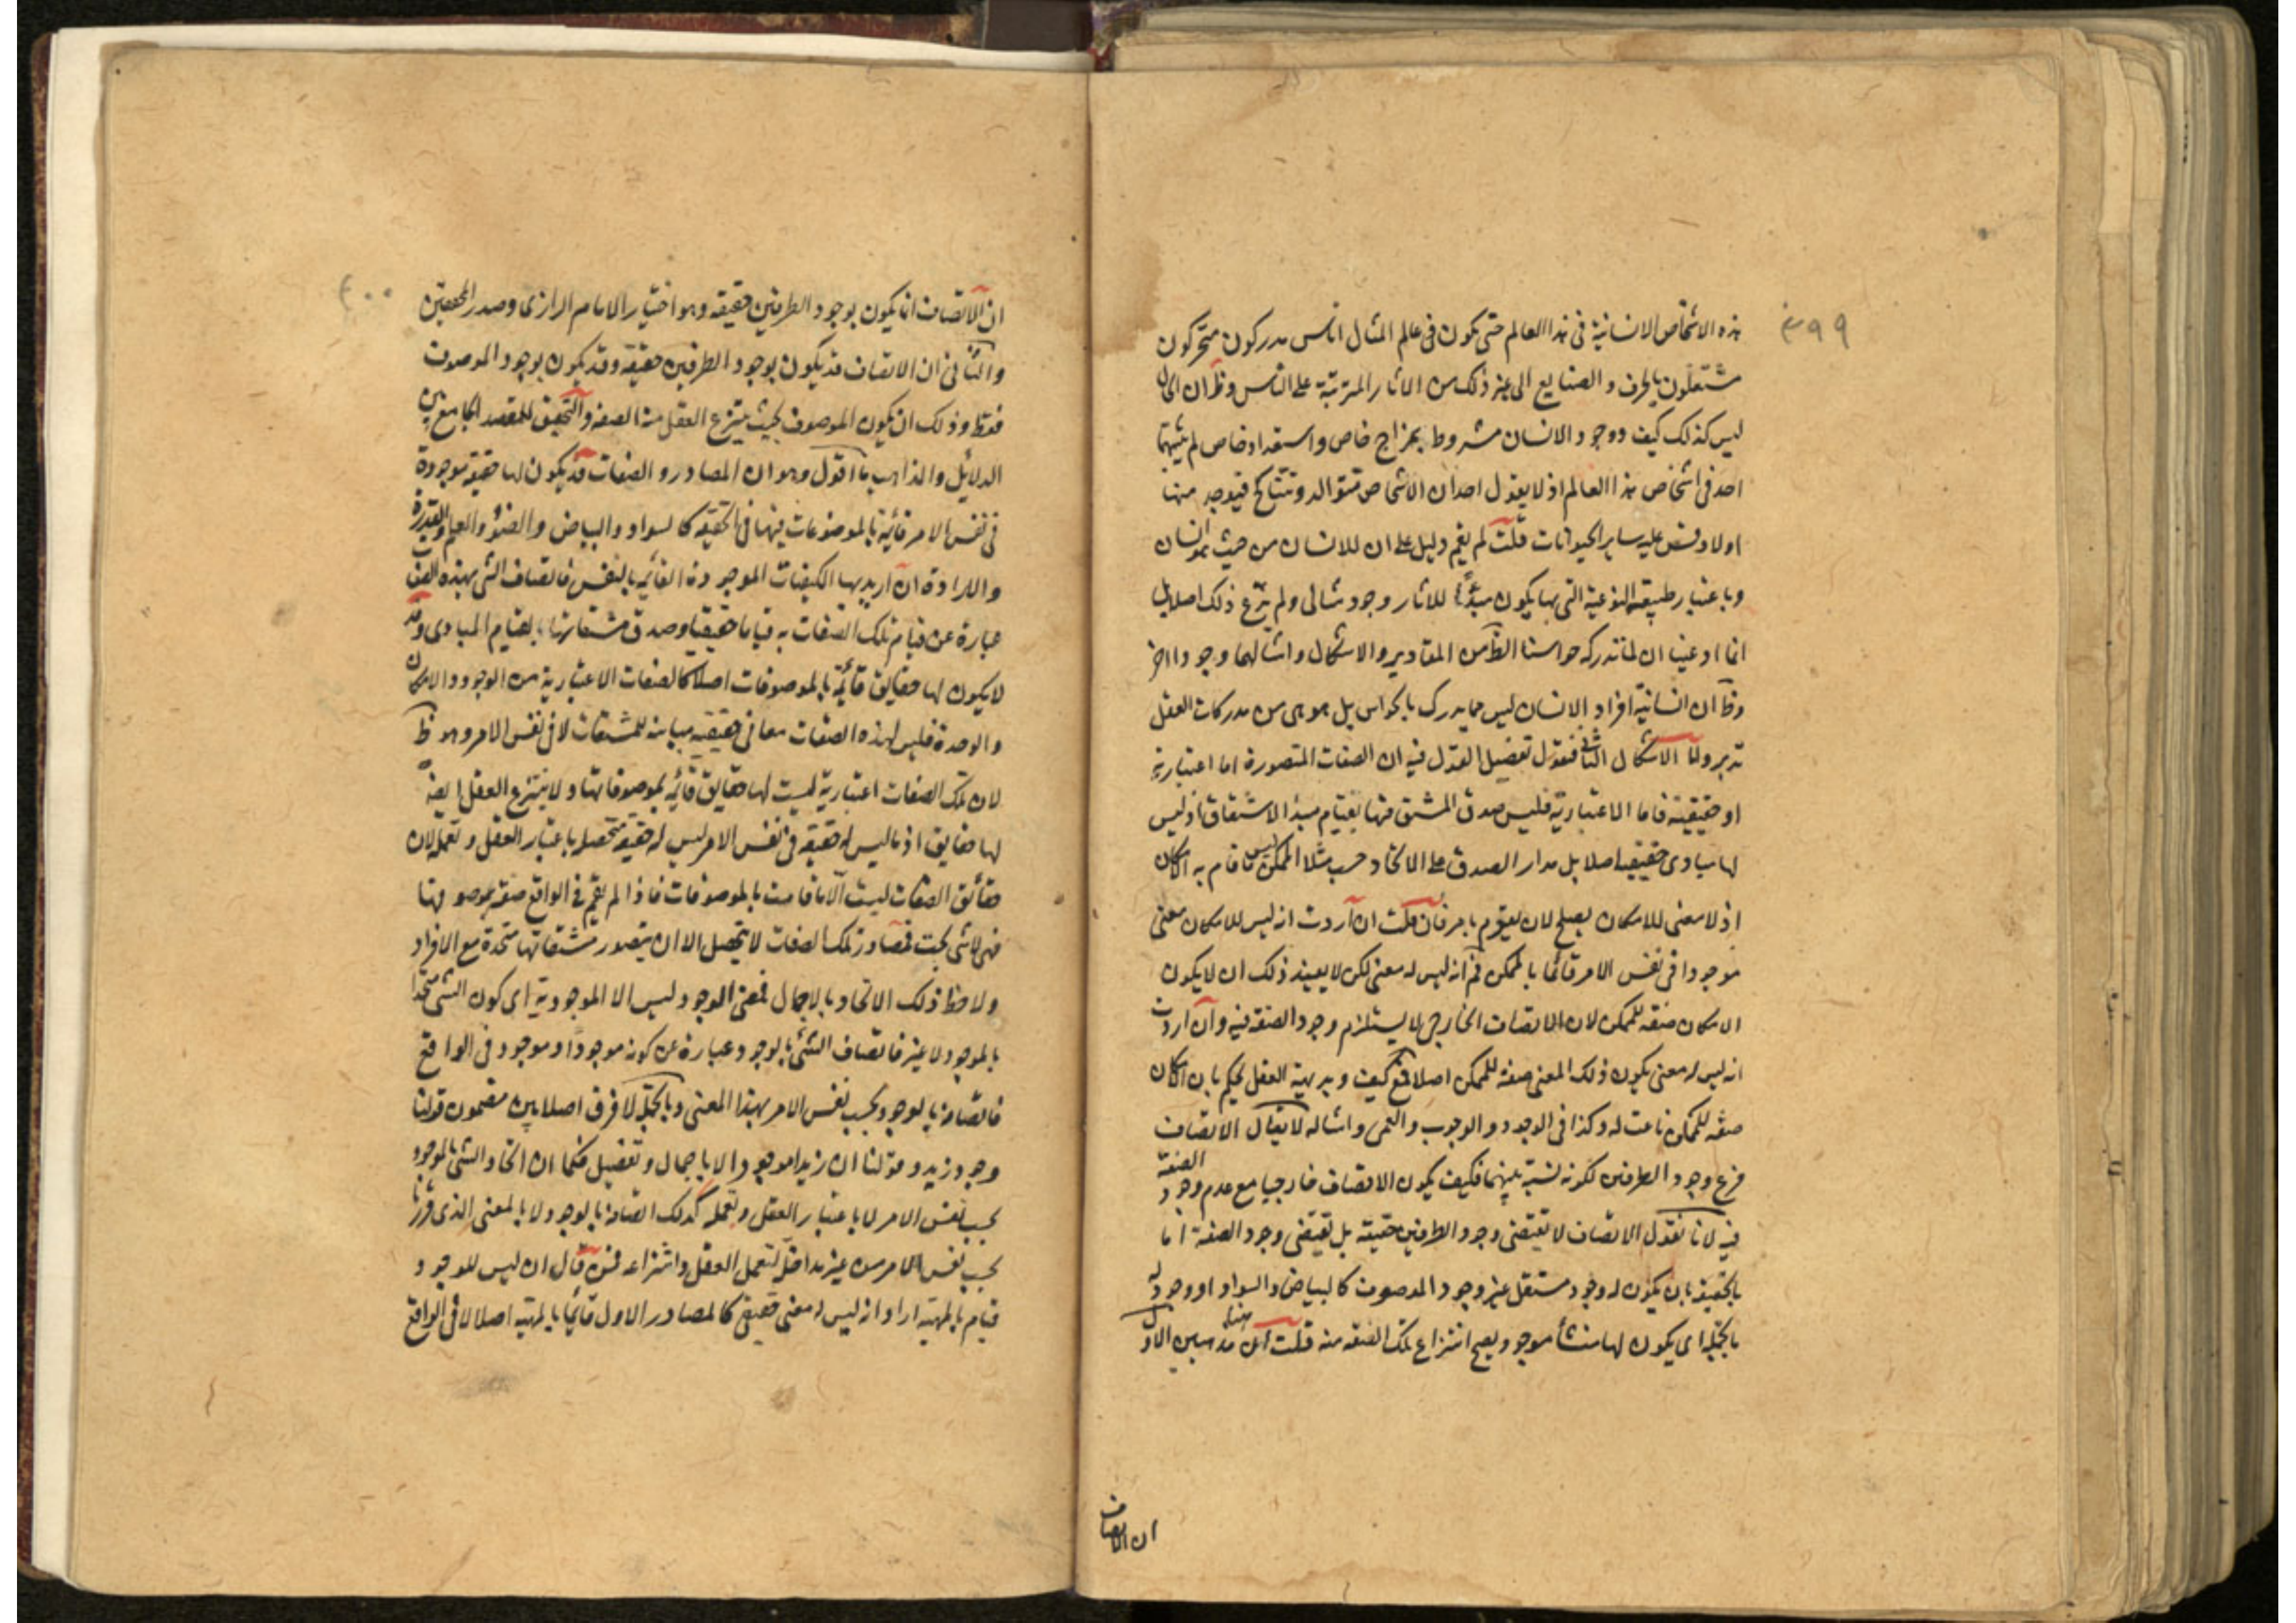 ٣٩٩
هذه الاشخاص الانسانية فى هذا العالم حتى يكون فى عالم المثال اناس مدركون متحركون
مشتغلون بالحرف و الصنايع الى غير ذلك من الاثار المترتبة على الناس وظ ان الحال
ليس كذلك كيف ووجود الانسان مشروط بمزاج خاص واستعداد خاص لم يثبتهما
احد فى اشخاص هذا العالم اذ لا يقول احد ان الاشخاص تتوالد وتتناكح فيوجد منها
اولاد وقس عليه ساير الحيوانات قلت لم يقم دليل على ان للانسان من حيث هو انسان
وباعتبار طبيعته النوعية التى بها يكون مبدأ للاثار وجود مثالى ولم ندع ذلك اصلا بل
انما ادعينا ان لما تدركه حواسنا الظ من المقادير والاشكال وامثالهما وجودا اخر
وظ ان انسانية افراد الانسان ليس مما يدرك بالحواس بل هو هى من مدركات العقل
تدبر واما الاشكال الثانى فنقول تفصيل القول فيه ان الصفات المتصورة اما اعتبارية
او حقيقية فاما الاعتبارية فليس صدق المشتق منها بقيام مبدأ الاشتقاق اذ ليس
لها مبادى حقيقية اصلا بل مدار الصدق على الاتحاد حسب مثلا الممكن ليس ما قام به الامكان
اذ لا معنى للامكان يصلح لان يقوم بامر فان قلت ان اردت انه ليس للامكان معنى
موجودا فى نفس الامر قائما بالممكن فم انه ليس له معنى لكن لا يفيد ذلك ان لا يكون
الامكان صفة للممكن لان الاتصاف الخارجى لا يستلزم وجود الصفة فيه وان اردت
انه ليس له معنى يكون ذلك المعنى صفة للممكن اصلا فمنع كيف وبديهية العقل يحكم بان الامكان
صفة للممكن ناعت له وكذا فى الوجود و الوجوب والعمى وامثاله لا يقال الاتصاف
فرع وجود الطرفين لكونه نسبة بينهما فكيف يكون الاتصاف خارجيا مع عدم وجود الصفة
فيه لانا نقول الاتصاف لا تقتضى وجود الطرفين حقيقة بل تقتضى وجود الصفة اما
بالحقيقة بان يكون له وجود مستقل غير وجود الموصوف كالبياض والسواد او وجود له
بالجملة اى يكون لها منشأ موجود يصح انتزاع تلك الصفة منه قلت ان هنا مذهبين الاول
ان الاتصاف
٤٠٠
ان الاتصاف انما يكون بوجود الطرفين حقيقة وهو اختيار الامام الرازى وصدر المحققين
والثانى ان الاتصاف قد يكون بوجود الطرفين حقيقة وقد يكون بوجود الموصوف
فقط وذلك ان يكون الموصوف بحيث ينتزع العقل منه الصفة والتحقيق للمقصد الجامع بين
الدلائل والمذاهب ما اقول وهو ان المصادر و الصفات قد يكون لها حقيقة موجودة
فى نفس الامر قائمة بالموضوعات فيها فى الحقيقة كالسواد والبياض والضوء والعلم والقدرة
والارادة ان اريد بها الكيفيات الموجودة القائمة بالنفس فاتصاف الشى بهذه الصفات
عبارة عن قيام تلك الصفات به قياما حقيقيا وصدق مشتقاتها بقيام المبادى وقد
لا يكون لها حقايق قائمة بالموصوفات اصلا كالصفات الاعتبارية من الوجود والامكان
والوحدة فليس لهذه الصفات معانى حقيقية مباينة للمشتقات لا فى نفس الامر وهو ظ
لان تلك الصفات اعتبارية ليست لها حقايق قائمة بموصوفاتها ولا ينتزع العقل ايضا
لها حقايق اذ ما ليس له حقيقة فى نفس الامر ليس له حقيقة متحصلة باعتبار العقل وتعمله لان
حقائق الصفات ليست الا ما قامت بالموصوفات فاذا لم تقم فى الواقع صفة بموصوفها
فهى لا شى بحت فمصادر تلك الصفات لا يتحصل الا ان يتصور مشتقاتها متحدة مع الافراد
ولاحظ ذلك الاتحاد بالاجمال فمعنى الوجود ليس الا الموجودية اى كون الشى متحدا
بالموجود لا غير فاتصاف الشئ بالوجود عبارة عن كونه موجودا وموجود فى الواقع
فاتصافه بالوجود بحسب نفس الامر بهذا المعنى وبالجملة لا فرق اصلا بين مضمون قولنا
وجود زيد وقولنا ان زيدا موجود الا باجمال و تفصيل فكما ان اتحاد الشى بالموجود
بحسب نفس الامر لا باعتبار العقل وتعمله كذلك اتصافه بالوجود لا بالمعنى الذى قررنا
بحسب نفس الامر من غير مداخلة لتعمل العقل وانتزاعه فمن قال ان ليس للوجود
قيام بالمهية اراد انه ليس له معنى حقيقى كالمصادر الاول قائما بالمهية اصلا لا فى الواقع